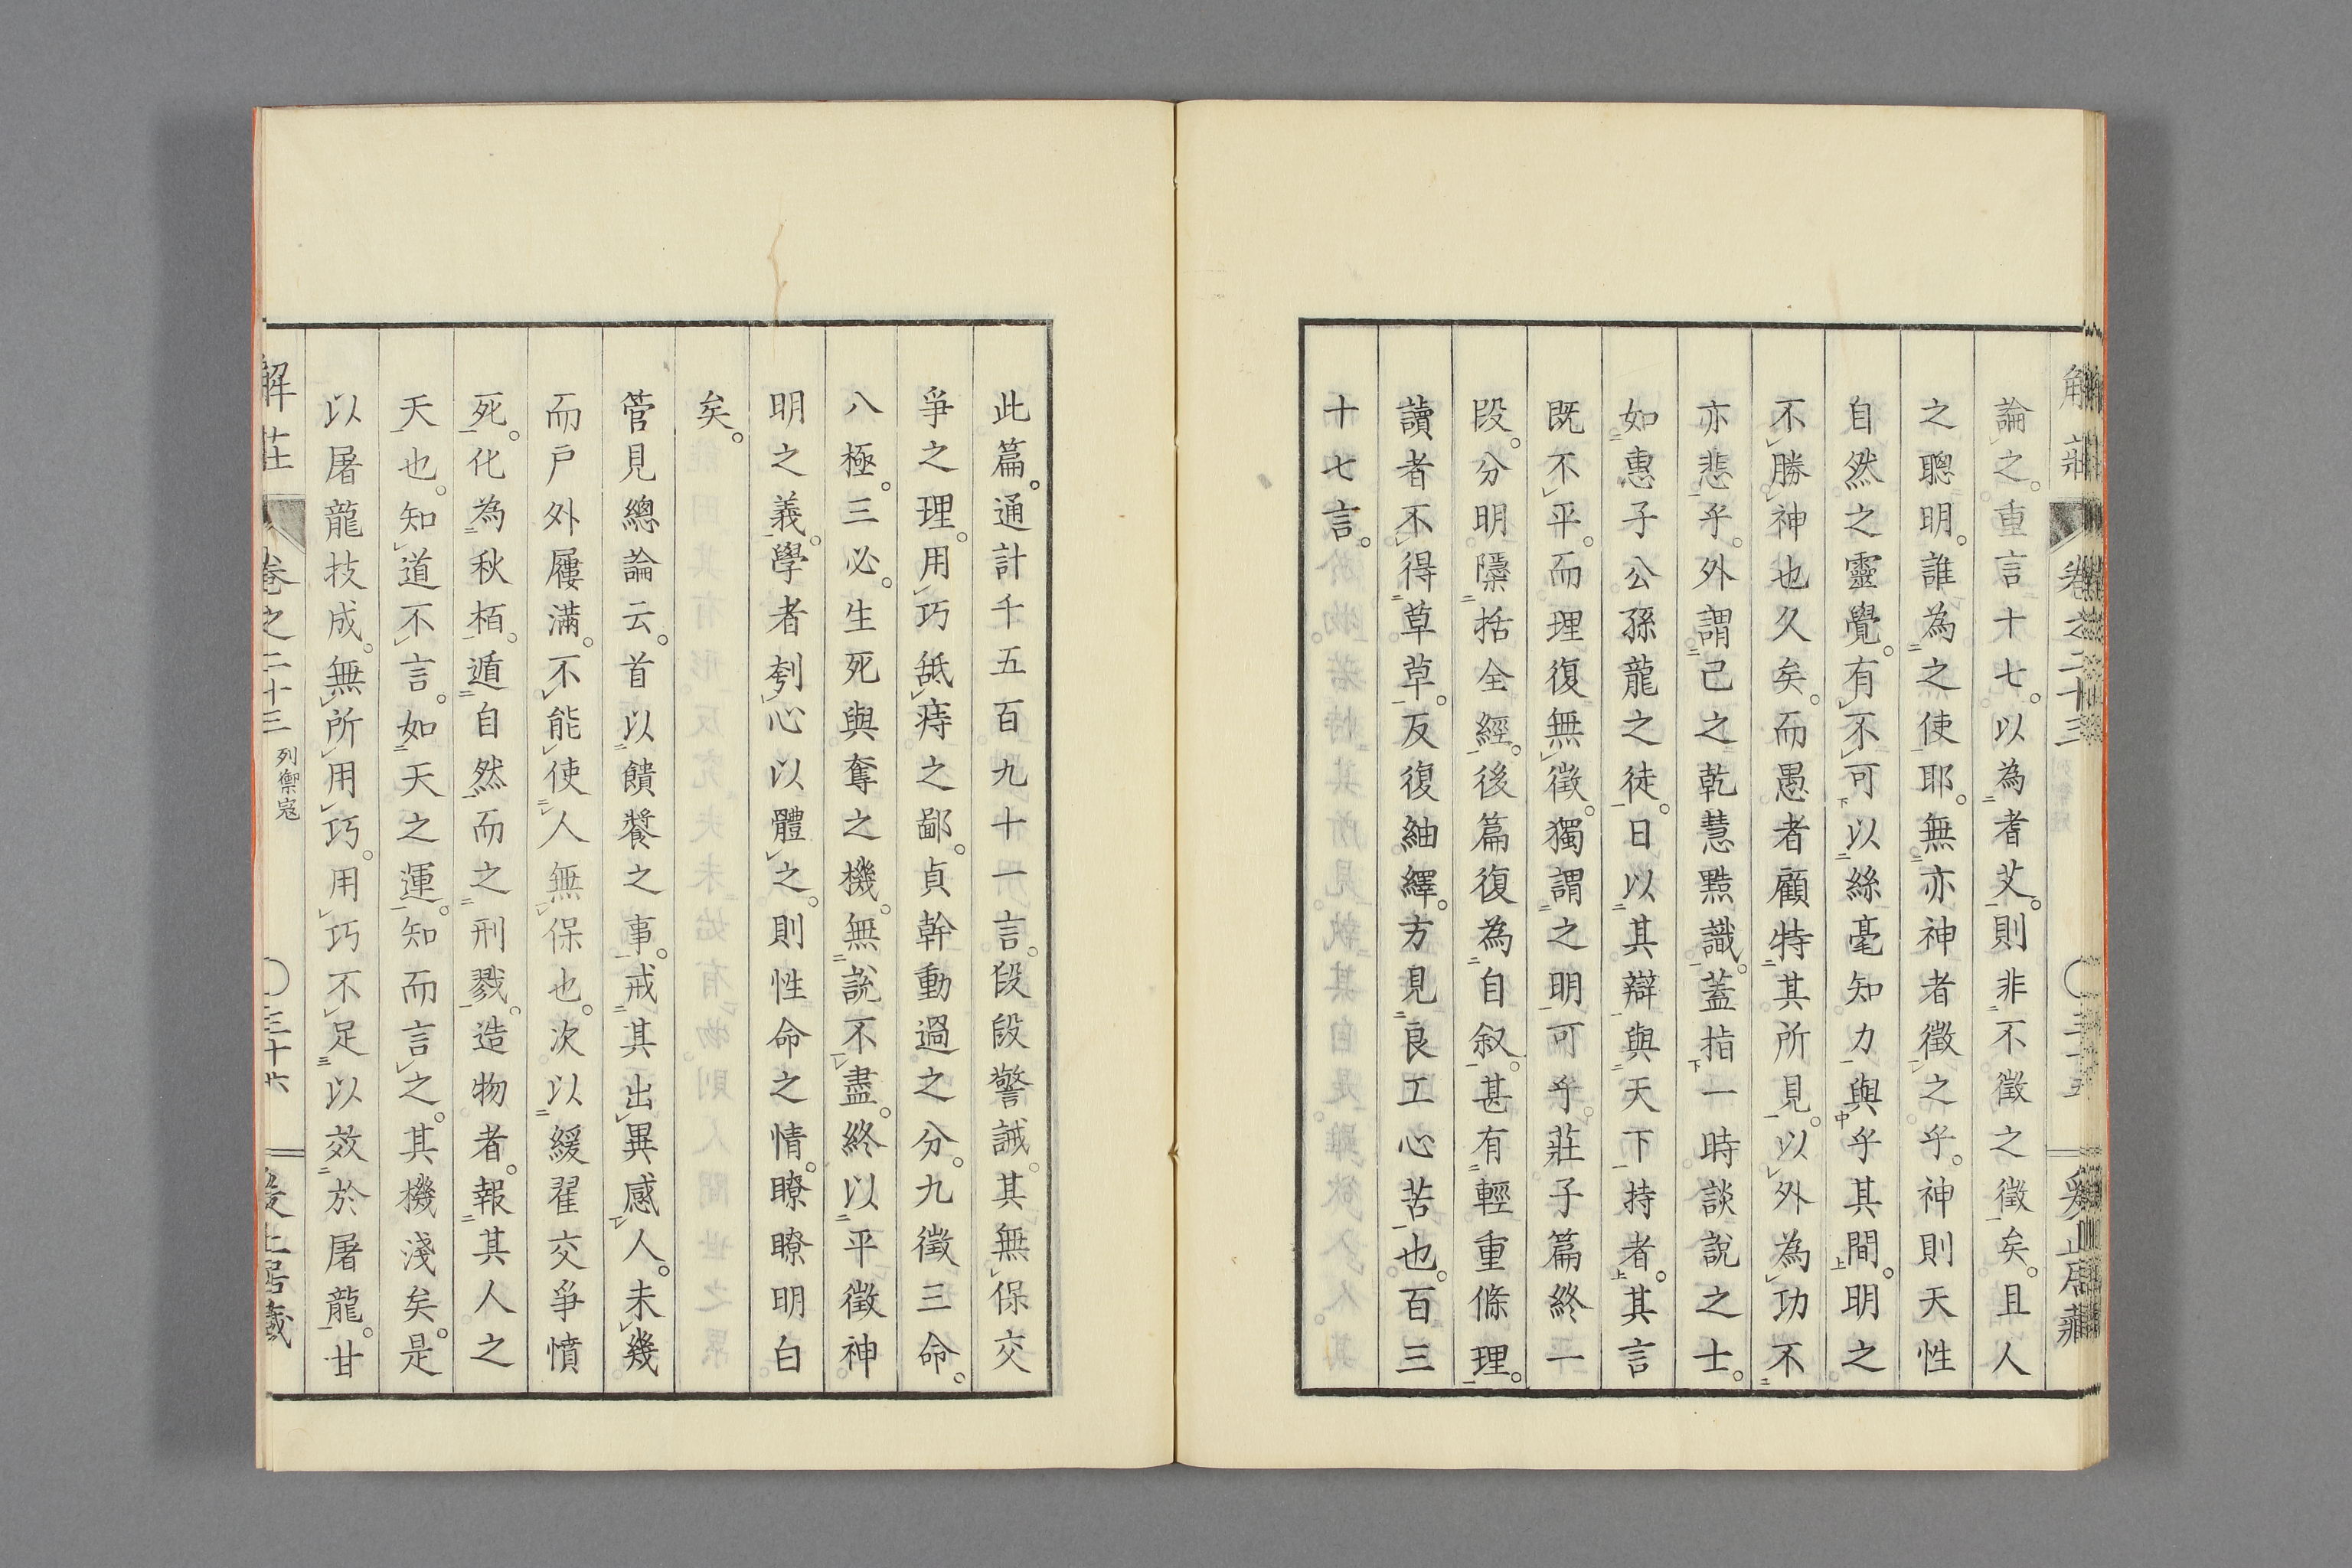 解莊 卷之二十三 三十五
論之。重言十七。以為耆艾。則非不徵之徵矣。且人
之聰明。誰為之使耶。無亦神者徵之乎。神則天性
自然之靈覺。有不可以絲毫知力與乎其間。明之
不勝神也久矣。而愚者顧特其所見。以外為功不
亦悲乎。外謂己之乾慧㸃識。蓋指一時談說之士。
如惠子公孫龍之徒。日以其辯與天下持者。其言
既不平。而理復無徵。獨謂之明可乎。莊子篇終一
段。分明隱括全經。後篇復為自叙。甚有輕重條理。
讀者不得草草。反復紬繹。方見良工心苦也。百三
十七言。
此篇。通計千五百九十一言。段段警誡。其無保交
爭之理。用巧舐痔之鄙。貞幹動過之分。九徵三命。
八極。三必。生死與奪之機。無說不盡。終以平徵神
明之義。學者刳心以體之。則性命之情。瞭瞭明白
矣。
管見總論云。首以饋餐之事。戒其出異感人。未幾
而戶外屨滿。不能使人無保也。次以緩翟交爭憤
死。化為秋栢。遁自然而之刑戮。造物者。報其人之
天也。知道不言。如天之運。知而言之。其機淺矣。是
以屠龍技成。無所用巧。用巧不足以效於屠龍。甘
解莊 卷之二十三 列禦寇 三十六